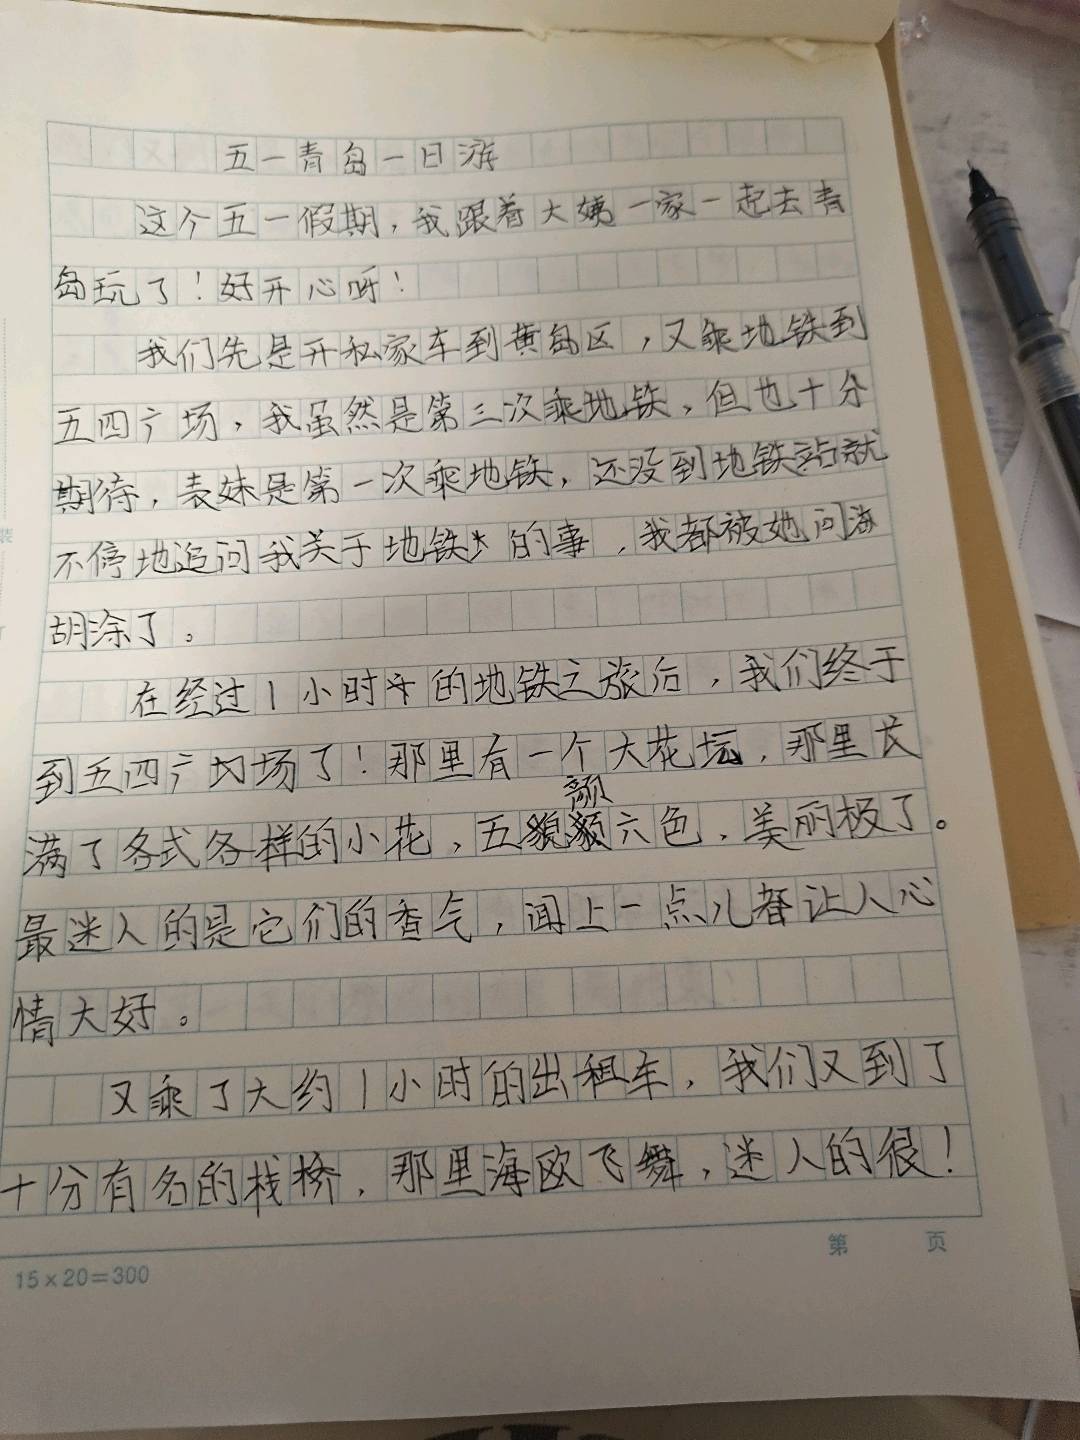 五一青岛一日游
这个五一假期，我跟着大姨一家一起去青
岛玩了！好开心呀！
我们先是开私家车到黄岛区，又乘地铁到
五四广场，我虽然是第三次乘地铁，但也十分
期待，表妹是第一次乘地铁，还没到地铁站就
不停地追问我关于地铁的事，我都被她问海
胡涂了。
在经过1小时半的地铁之旅后，我们终于
到五四广场了！那里有一个大花坛，那里长
颜
满了各式各样的小花，五六色，美丽极了。
最迷人的是它们的香气，闻上一点儿都让人心
情大好。
又乘了大约1小时的出租车，我们又到了
十分有名的栈桥，那里海欧飞舞，迷人的很！
第 页
15×20=300